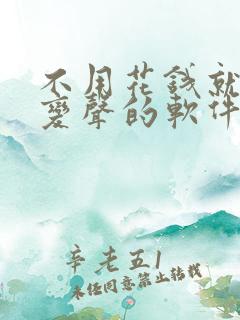 不用花錢就
變聲的軟件
辛老五1
未经同意禁止转载